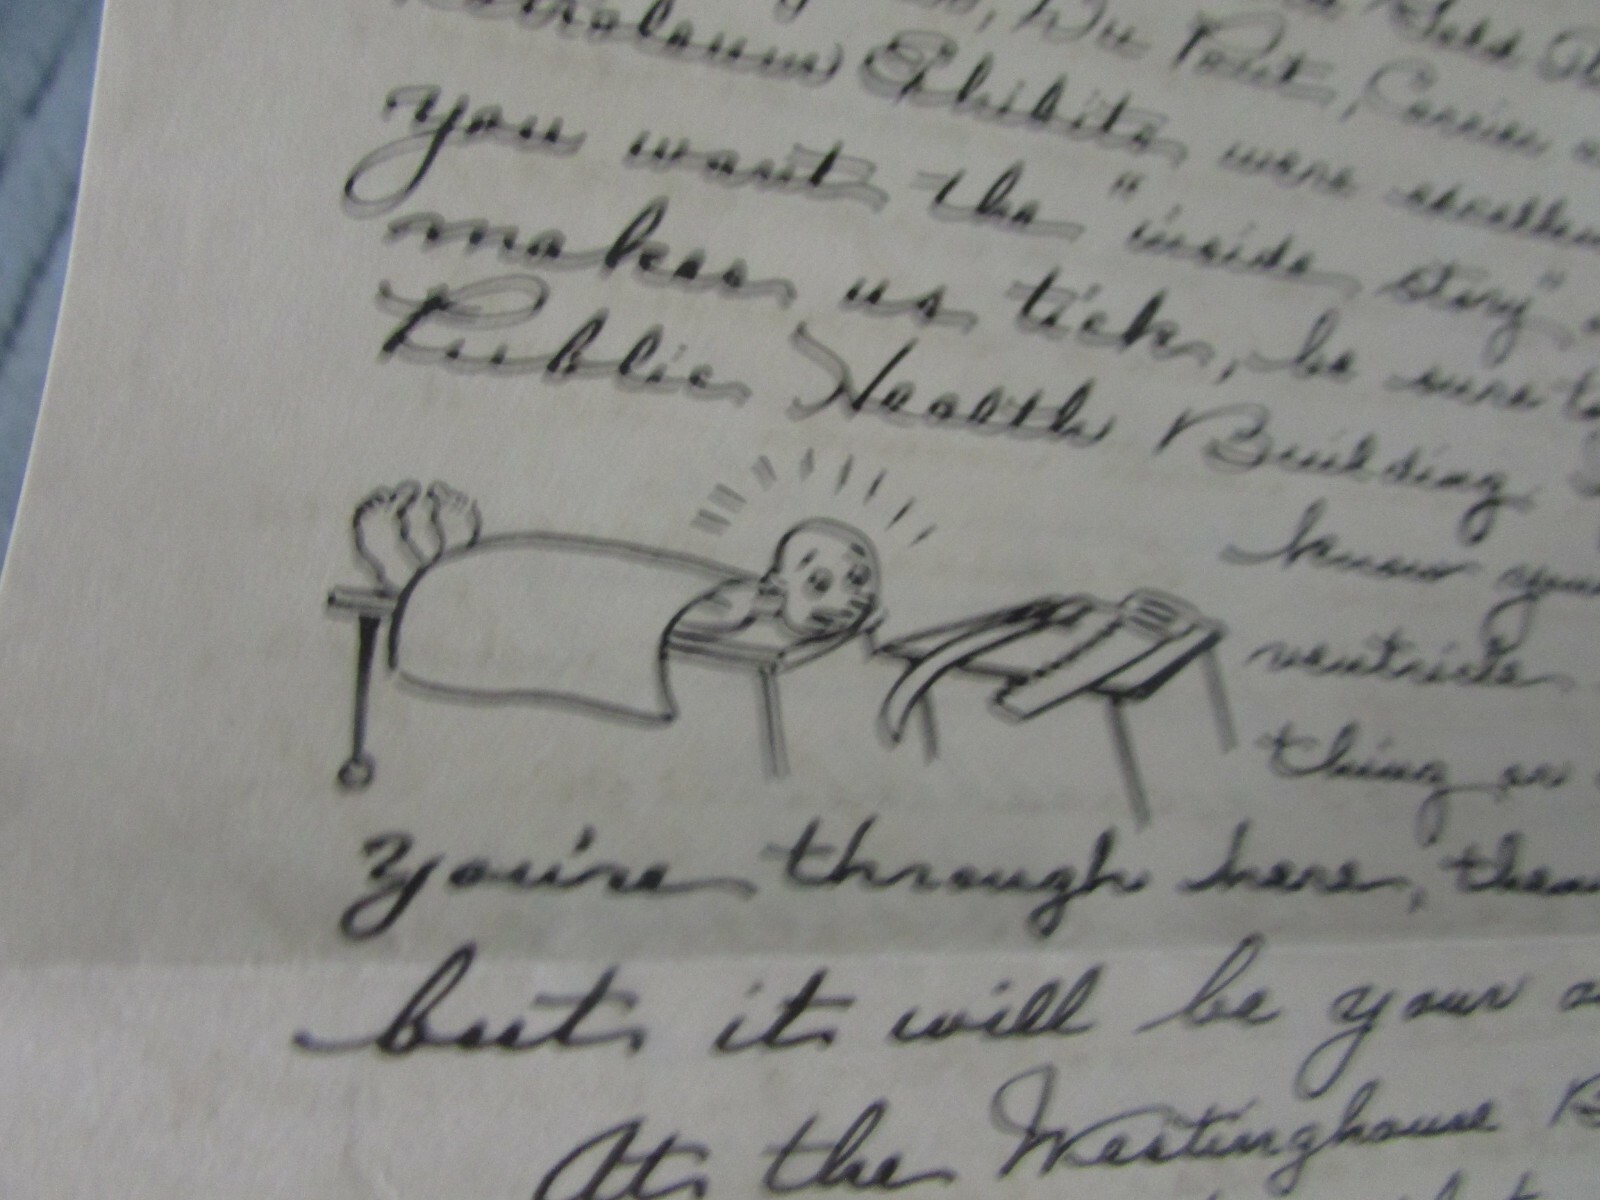 Du Pont, Carrier
Petroleum Exhibits were excellen
you want the "inside story"
makes us tick, be sure to
Public Health Building
know your
ventricle
thing or
you're through here, then
but it will be your
At the Westinghouse B